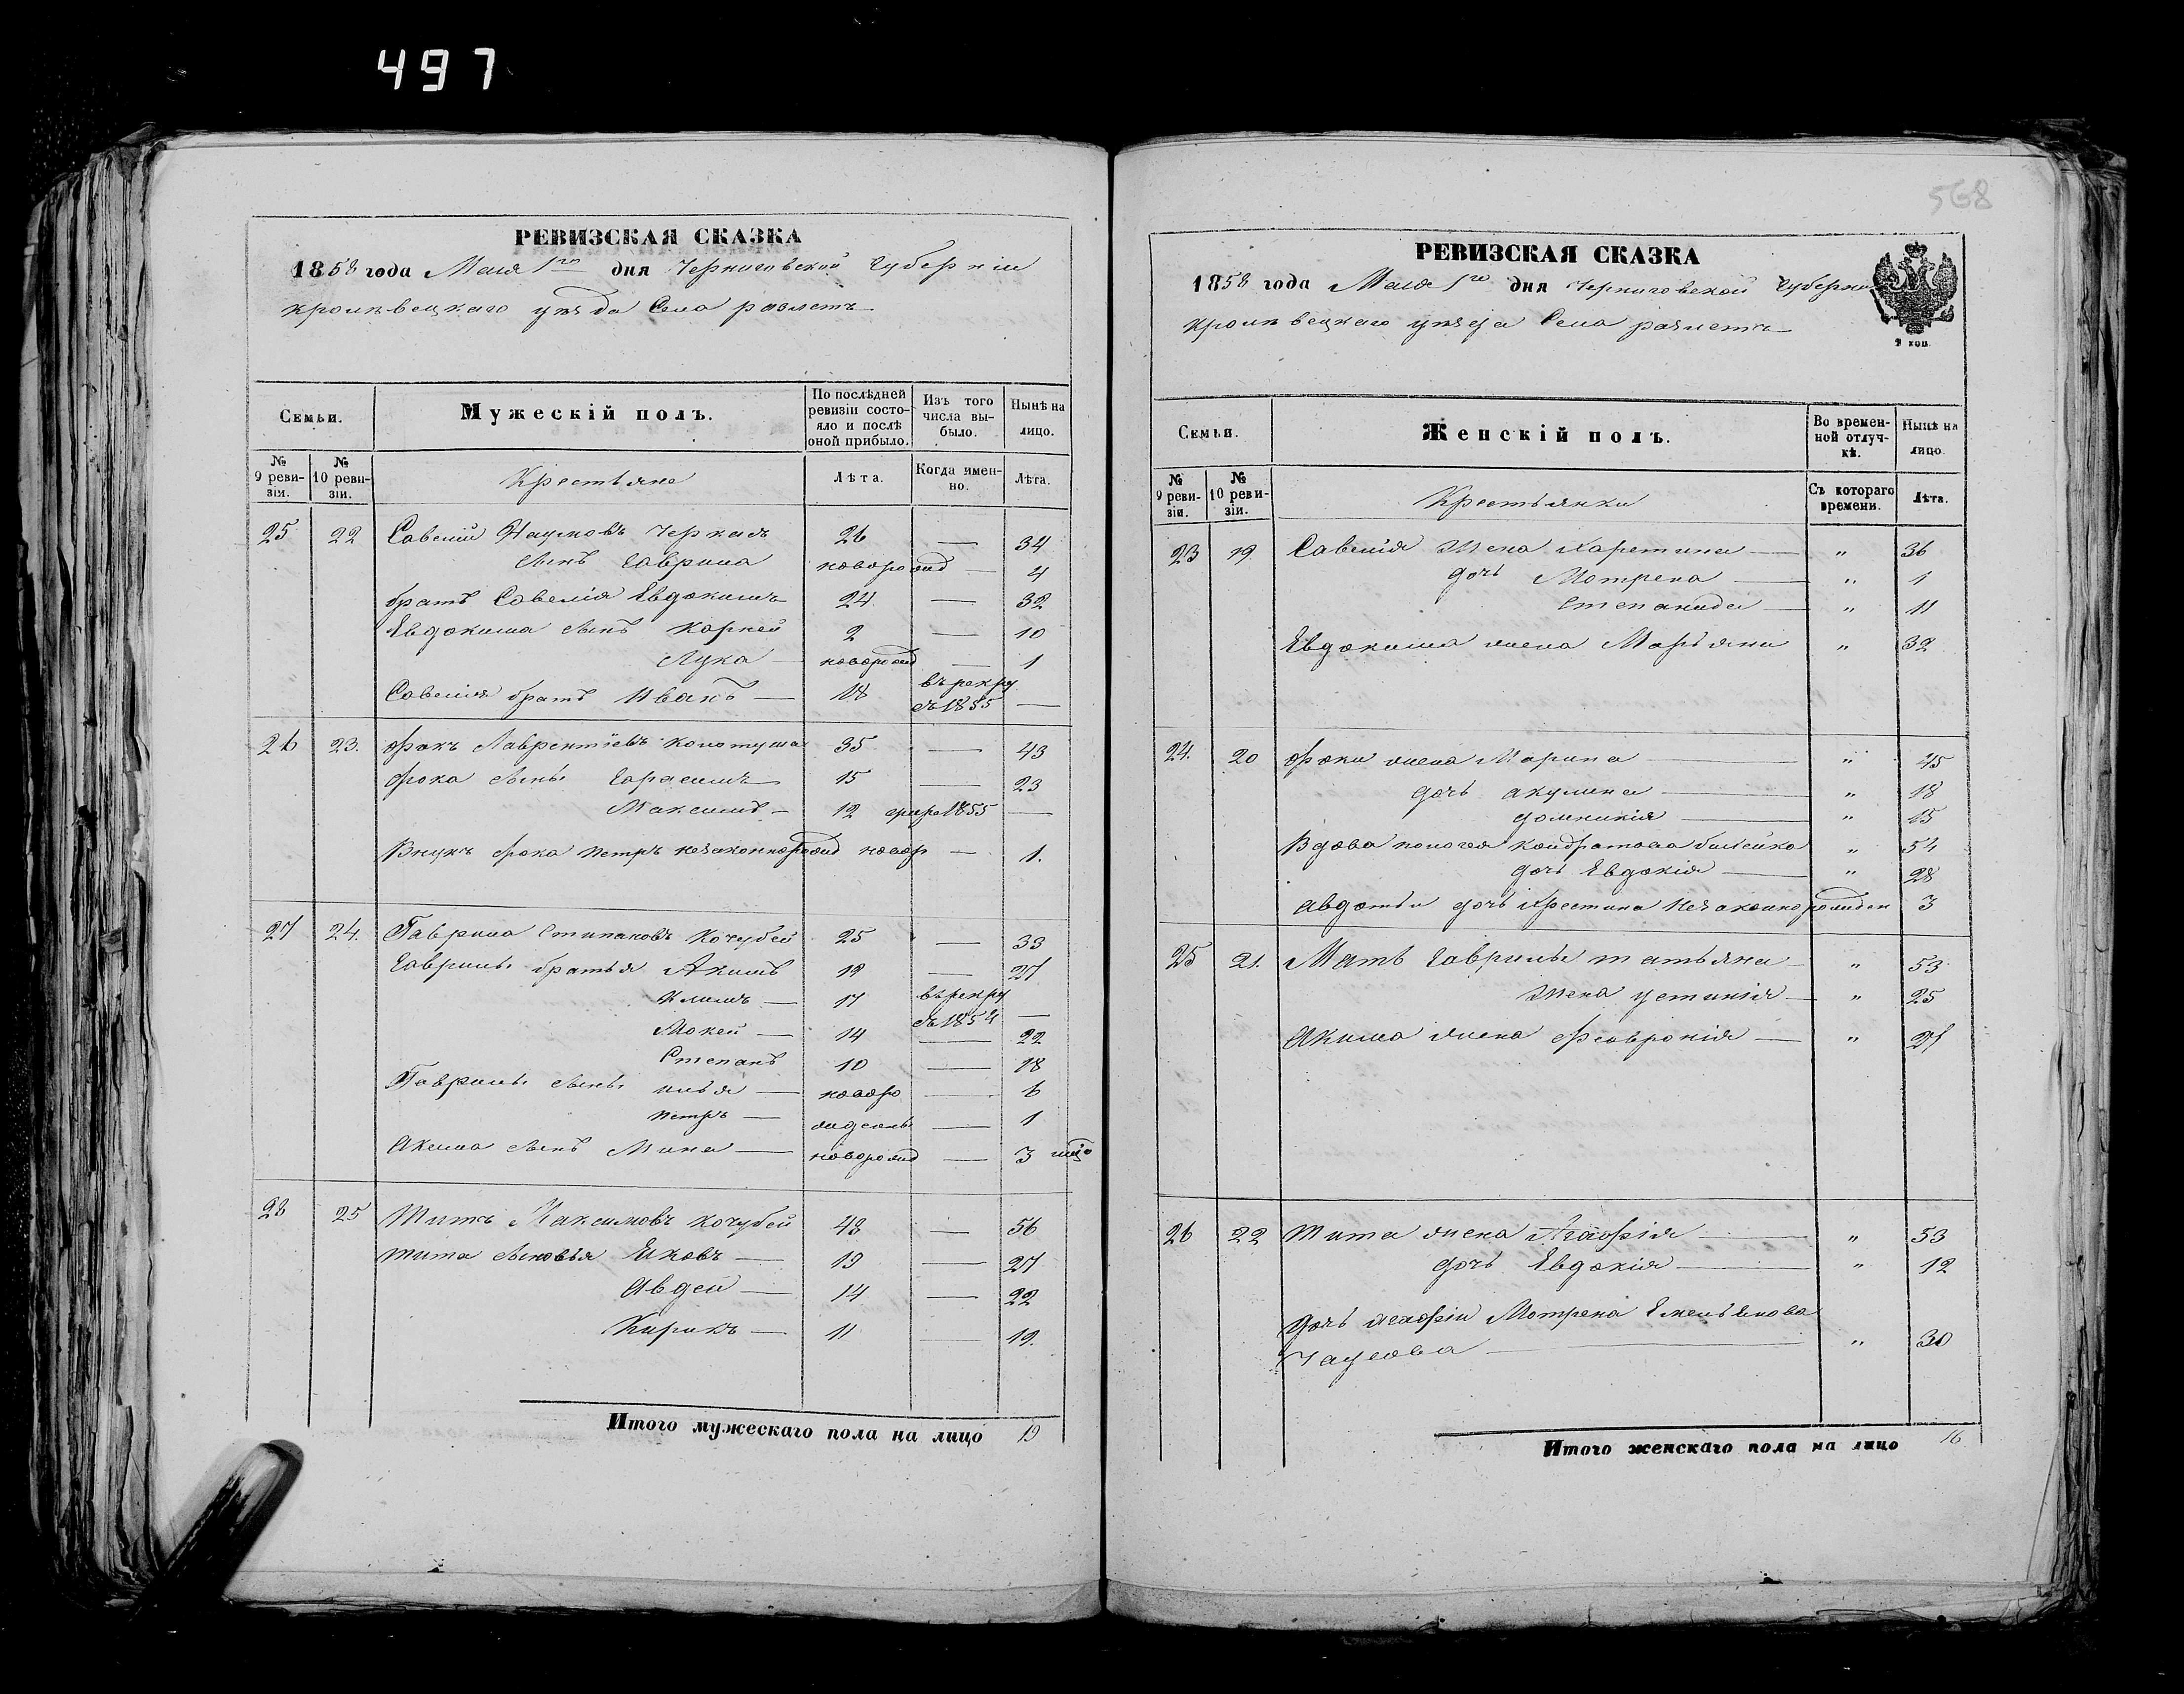 497
568
РЕВИЗСКАЯ СКАЗКА
1858 года Мая 1го дня Черниговской Губерніи
Кролѣвецкаго уѣзда Села
Семьи.
Мужескій полъ.
По послѣдней ревизіи состояло и послѣ оной прибыло.
Изъ того числа выбыло.
Нынѣ на лицо.
№ 9 ревизіи.
№ 10 ревизіи.
Крестьяне
Лѣта.
Когда именно.
Лѣта.
25 22 Савелій Наумовъ Черкасъ 26 — 34
сынъ Гаврила новорожд — 4
братъ Савелія Евдокимъ 24 — 32
Евдокима сынъ Корней 2 — 10
Лука — новорожд — 1
Савелія братъ Иванъ — 18 въ рекру съ 1855 —
26 23. Фокъ Лаврентіевъ Колотуша 35 — 43
Фока сыны Гарасимъ 15 — 23
Максимъ — 12 1855 —
Внукъ Фока Петръ незаконнорожд новор — 1.
27 24. Гаврила Стипановъ Кочубей 25 — 33
Гаврилы братья Акимъ 19 — 27
Климъ — 17 въ рекру съ 1854 —
Мокей — 14 — 22
Степанъ 10 — 18
Гаврилы сыны Илья — новоро — 6
Петръ — ждены — 1
Акима сынъ Мина — новорожд — 3
28 25 Титъ Максимовъ Кочубей 48 — 56
Тита сыновья Яковъ — 19 — 27
Авдей — 14 — 22
Кирикъ — 11 — 19.
Итого мужескаго пола на лицо 19
РЕВИЗСКАЯ СКАЗКА
1858 года Мая 1го дня Черниговской Губерніи
Кролѣвецкаго уѣзда Села
2 коп.
Семьи.
Женскій полъ.
Во временной отлучкѣ.
Нынѣ на лицо.
№ 9 ревизіи.
№ 10 ревизіи.
Крестьянки
Съ котораго времени.
Лѣта.
23 19 Савелія жена Харетина — " 36
дочь Мотрена — " 1
Степанида — " 11
Евдокима жена Марьяна " 32
24. 20 Фоки жена Марина — " 45
дочь Акулина — " 18
Домникія — " 15
Вдова Пологея Кондратова " 54
дочь Евдокія — " 28
Авдотьи дочь Хрестина Незаконнорожден 3
25 21. Мать Гаврилы Татьяна — " 53
жена Устинія — " 25
Акима жена Февронія — " 21
26 22 Тита жена Агафія — " 53
дочь Евдокія — " 12
дочь Агафіи Мотрена Емельянова
Чаусова — " 30
Итого женскаго пола на лицо 16